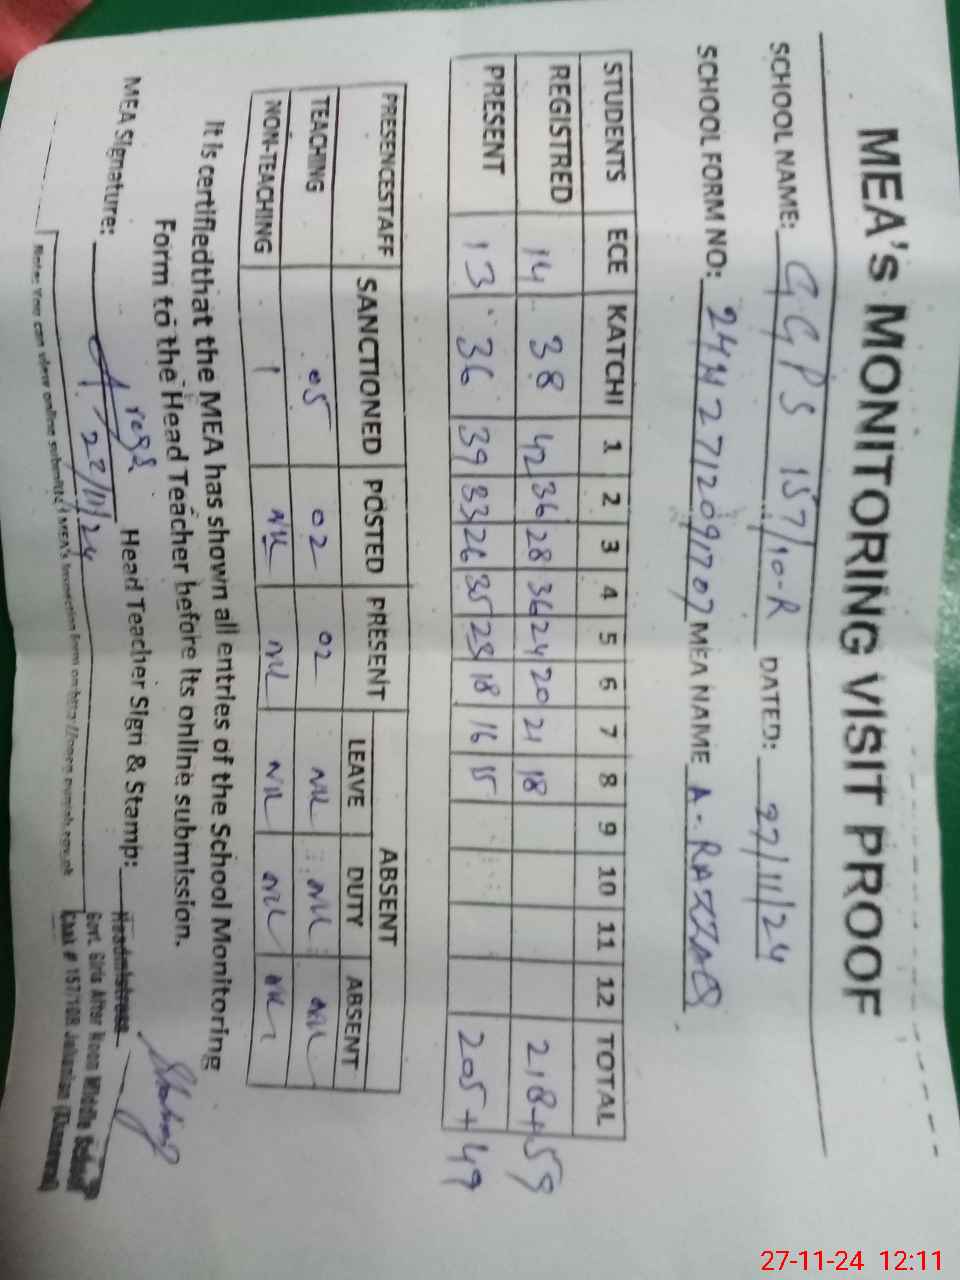 MEA'S MONITORING VISIT PROOF
SCHOOL NAME: GGPS 157/10-R DATED: 27/11/24
SCHOOL FORM NO: MEA NAME A. RAZZAQ
STUDENTS ECE KATCHI 1 2 3 4 5 6 7 8 9 10 11 12 TOTAL
REGISTRED 14 38 42 36 28 36 24 20 21 18 218+59
PRESENT 13 36 39 33 26 35 23 18 16 15 205+49
PRESENCESTAFF SANCTIONED POSTED PRESENT ABSENT
LEAVE DUTY ABSENT
TEACHING 05 02 02 NIL NIL NIL
NON-TEACHING 1 NIL NIL NIL NIL NIL
It is certifiedthat the MEA has shown all entries of the School Monitoring
Form to the Head Teacher before its online submission.
MEA Signature: Head Teacher Sign & Stamp:
27/11/24
Headmistress
Govt. Girls After Noon Middle School
Chak # 157/10R Jahanian (Khanewal)
Note: You can view online submitted MEA's Inspection form on http://open.punjab.gov.pk
27-11-24 12:11